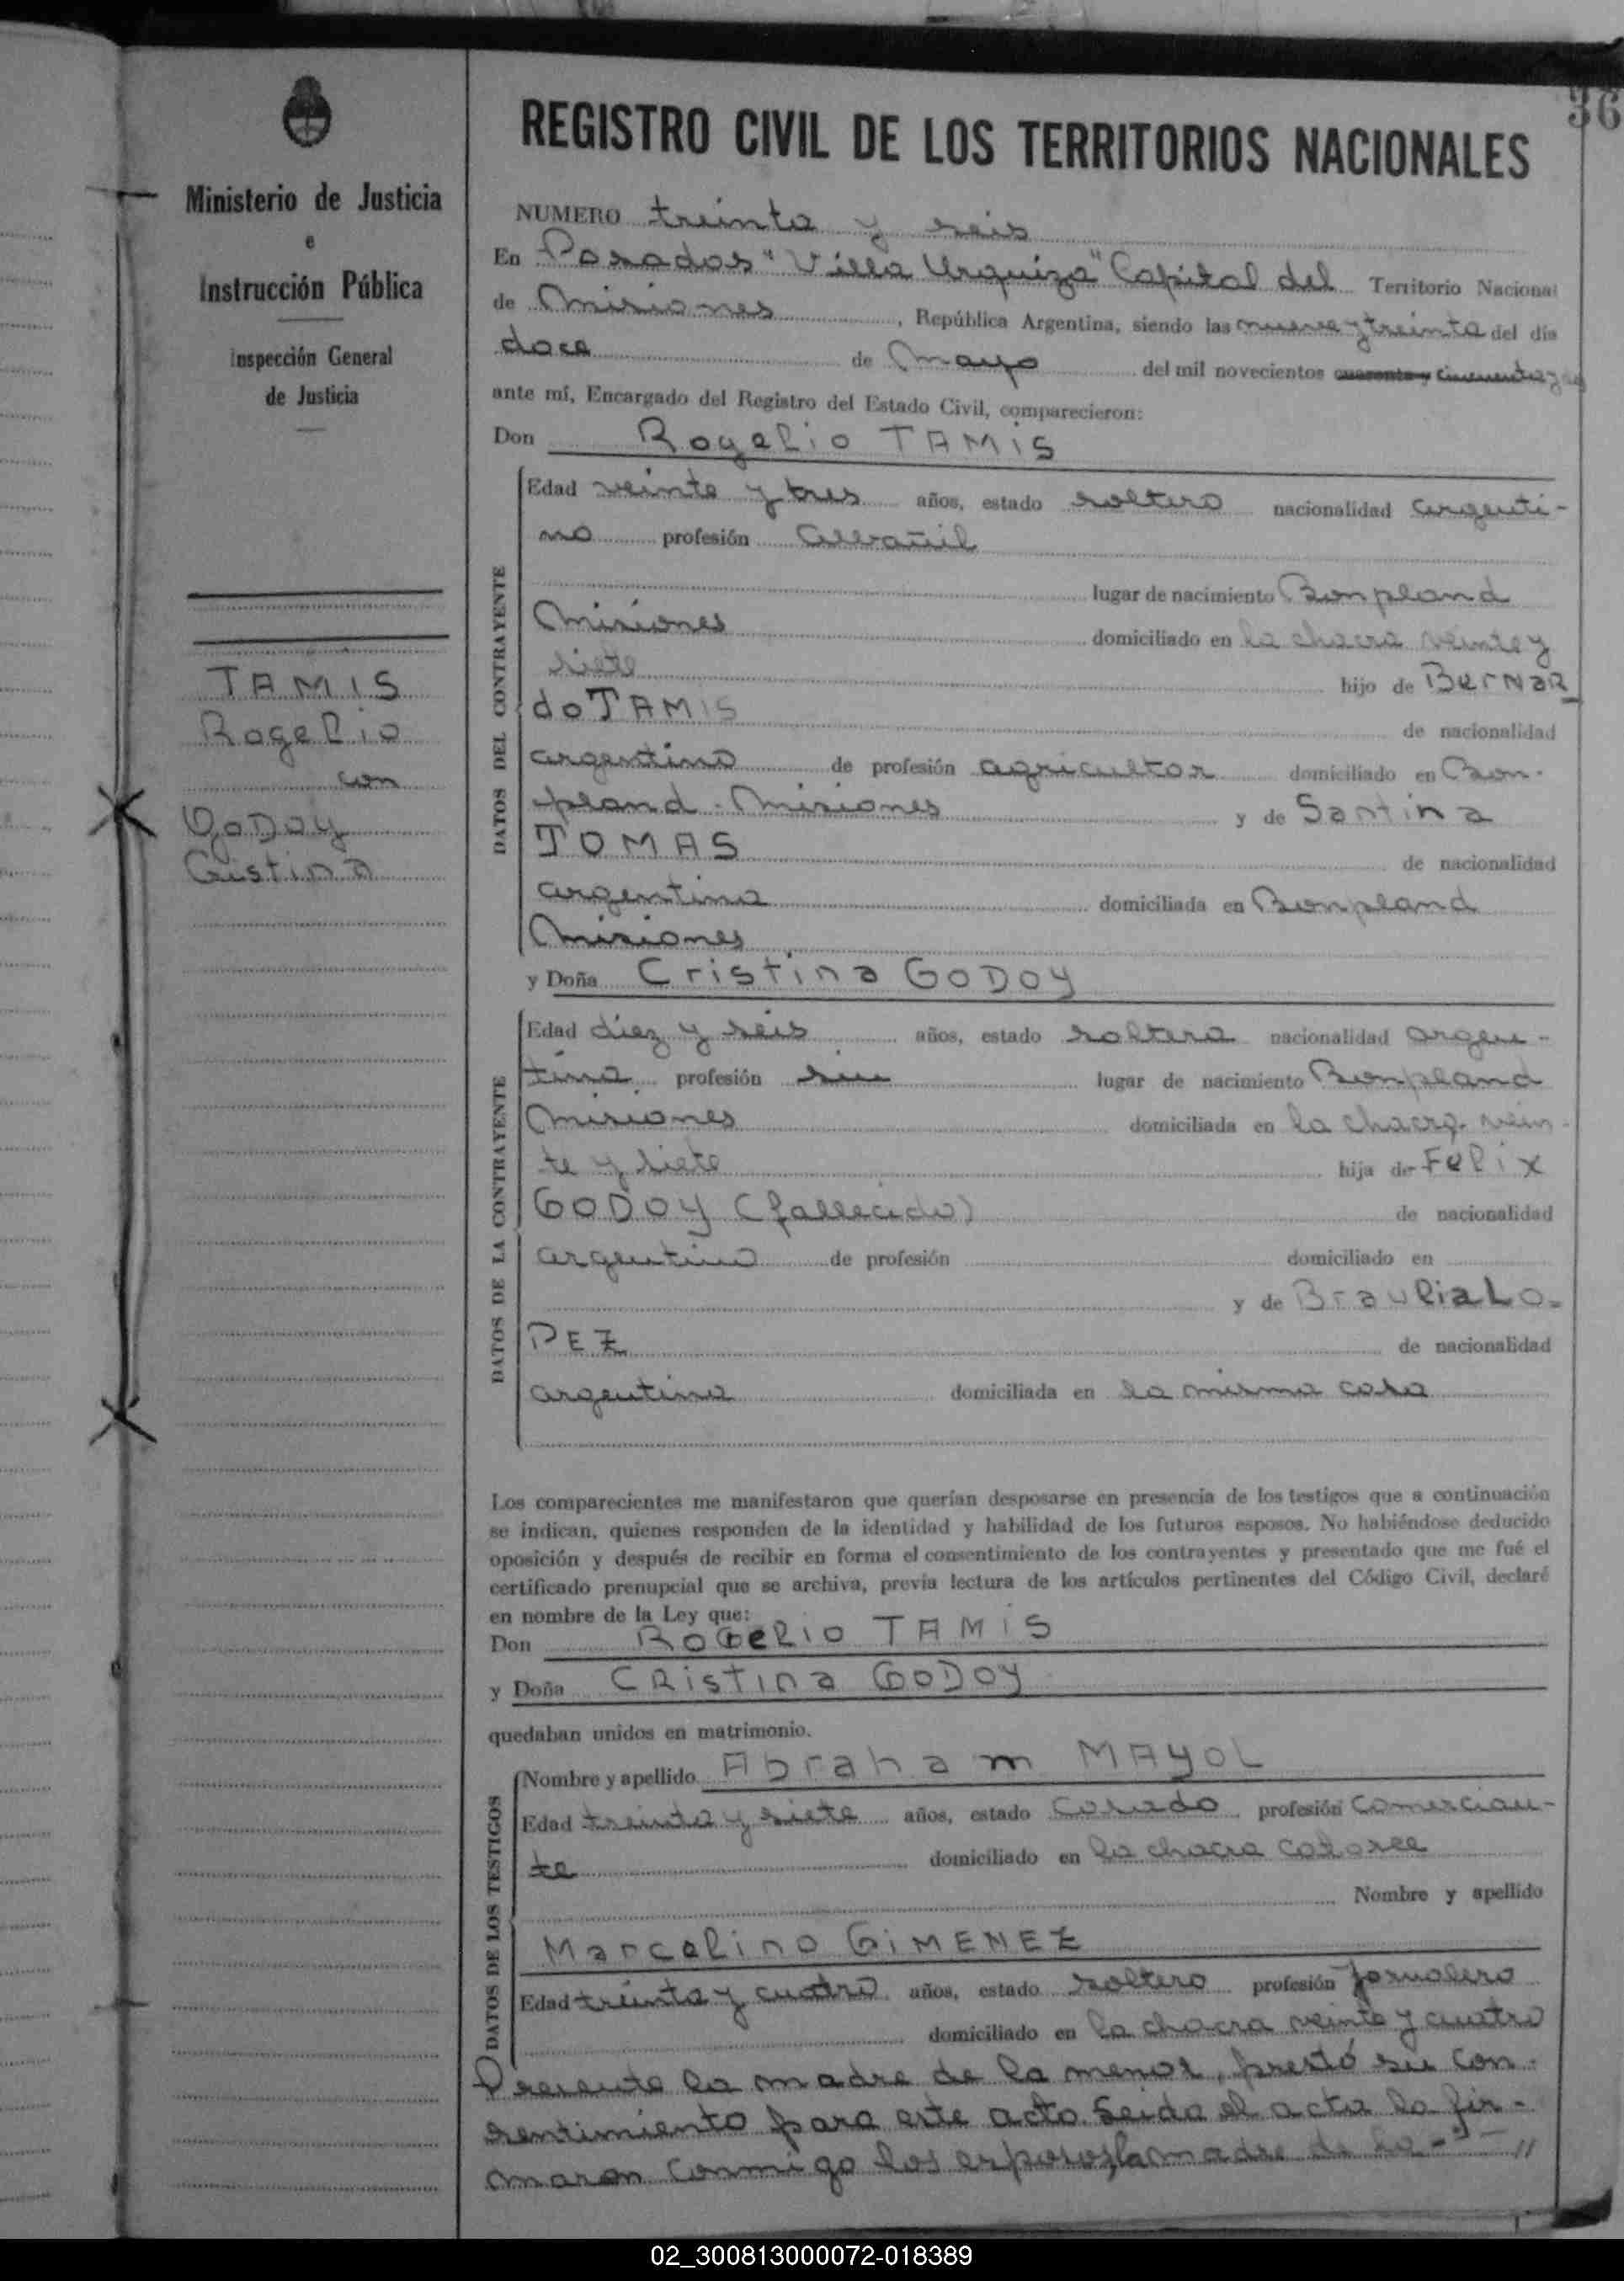 36
REGISTRO CIVIL DE LOS TERRITORIOS NACIONALES
Ministerio de Justicia
e
Instrucción Pública
Inspección General
de Justicia
TAMIS
Rogelio
con
GODOY
Cristina
NUMERO treinta y seis
En Posadas "Villa Urquiza" Capital del Territorio Nacional
de Misiones, República Argentina, siendo las nueve y treinta del día
doce de Mayo del mil novecientos cuarenta y cincuenta y
ante mí, Encargado del Registro del Estado Civil, comparecieron:
Don Rogelio TAMIS
DATOS DEL CONTRAYENTE
Edad veinte y tres años, estado soltero nacionalidad argenti-
no profesión albañil
lugar de nacimiento Bonpland
Misiones domiciliado en la chacra veinte y
siete hijo de BerNaR
do TAMIS de nacionalidad
argentino de profesión agricultor domiciliado en Bon-
pland - Misiones y de Santina
TOMAS de nacionalidad
argentina domiciliada en Bonpland
Misiones
y Doña Cristina GODOY
DATOS DE LA CONTRAYENTE
Edad diez y seis años, estado soltera nacionalidad argen-
tina profesión sin lugar de nacimiento Bonpland
Misiones domiciliada en la chacra vein-
te y siete hija de Felix
GODOY (fallecido) de nacionalidad
argentino de profesión domiciliado en
y de Braulia Lo-
PEZ de nacionalidad
argentina domiciliada en la misma casa
Los comparecientes me manifestaron que querían desposarse en presencia de los testigos que a continuación
se indican, quienes responden de la identidad y habilidad de los futuros esposos. No habiéndose deducido
oposición y después de recibir en forma el consentimiento de los contrayentes y presentado que me fué el
certificado prenupcial que se archiva, previa lectura de los artículos pertinentes del Código Civil, declaré
en nombre de la Ley que:
Don ROGELIO TAMIS
y Doña CRistina GODOY
quedaban unidos en matrimonio.
DATOS DE LOS TESTIGOS
Nombre y apellido Abraham MAYOL
Edad treinta y siete años, estado casado profesión comercian-
te domiciliado en la chacra catorce
Nombre y apellido
Marcelino GIMENEZ
Edad treinta y cuatro años, estado soltero profesión jornalero
domiciliado en la chacra veinte y cuatro
Presente la madre de la menor, prestó su con-
sentimiento para este acto. Leída el acta la fir-
maron conmigo los esposos, la madre de la - " - //
02_300813000072-018389